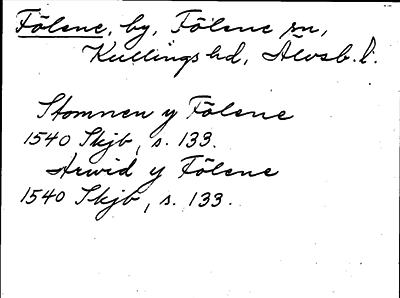 Fölene, by, Fölene sn,
Kullings hd, Älvsb. l.
Stomnen y Fölene
1540 Skjb, s. 133.
Arwid y Fölene
1540 Skjb, s. 133.